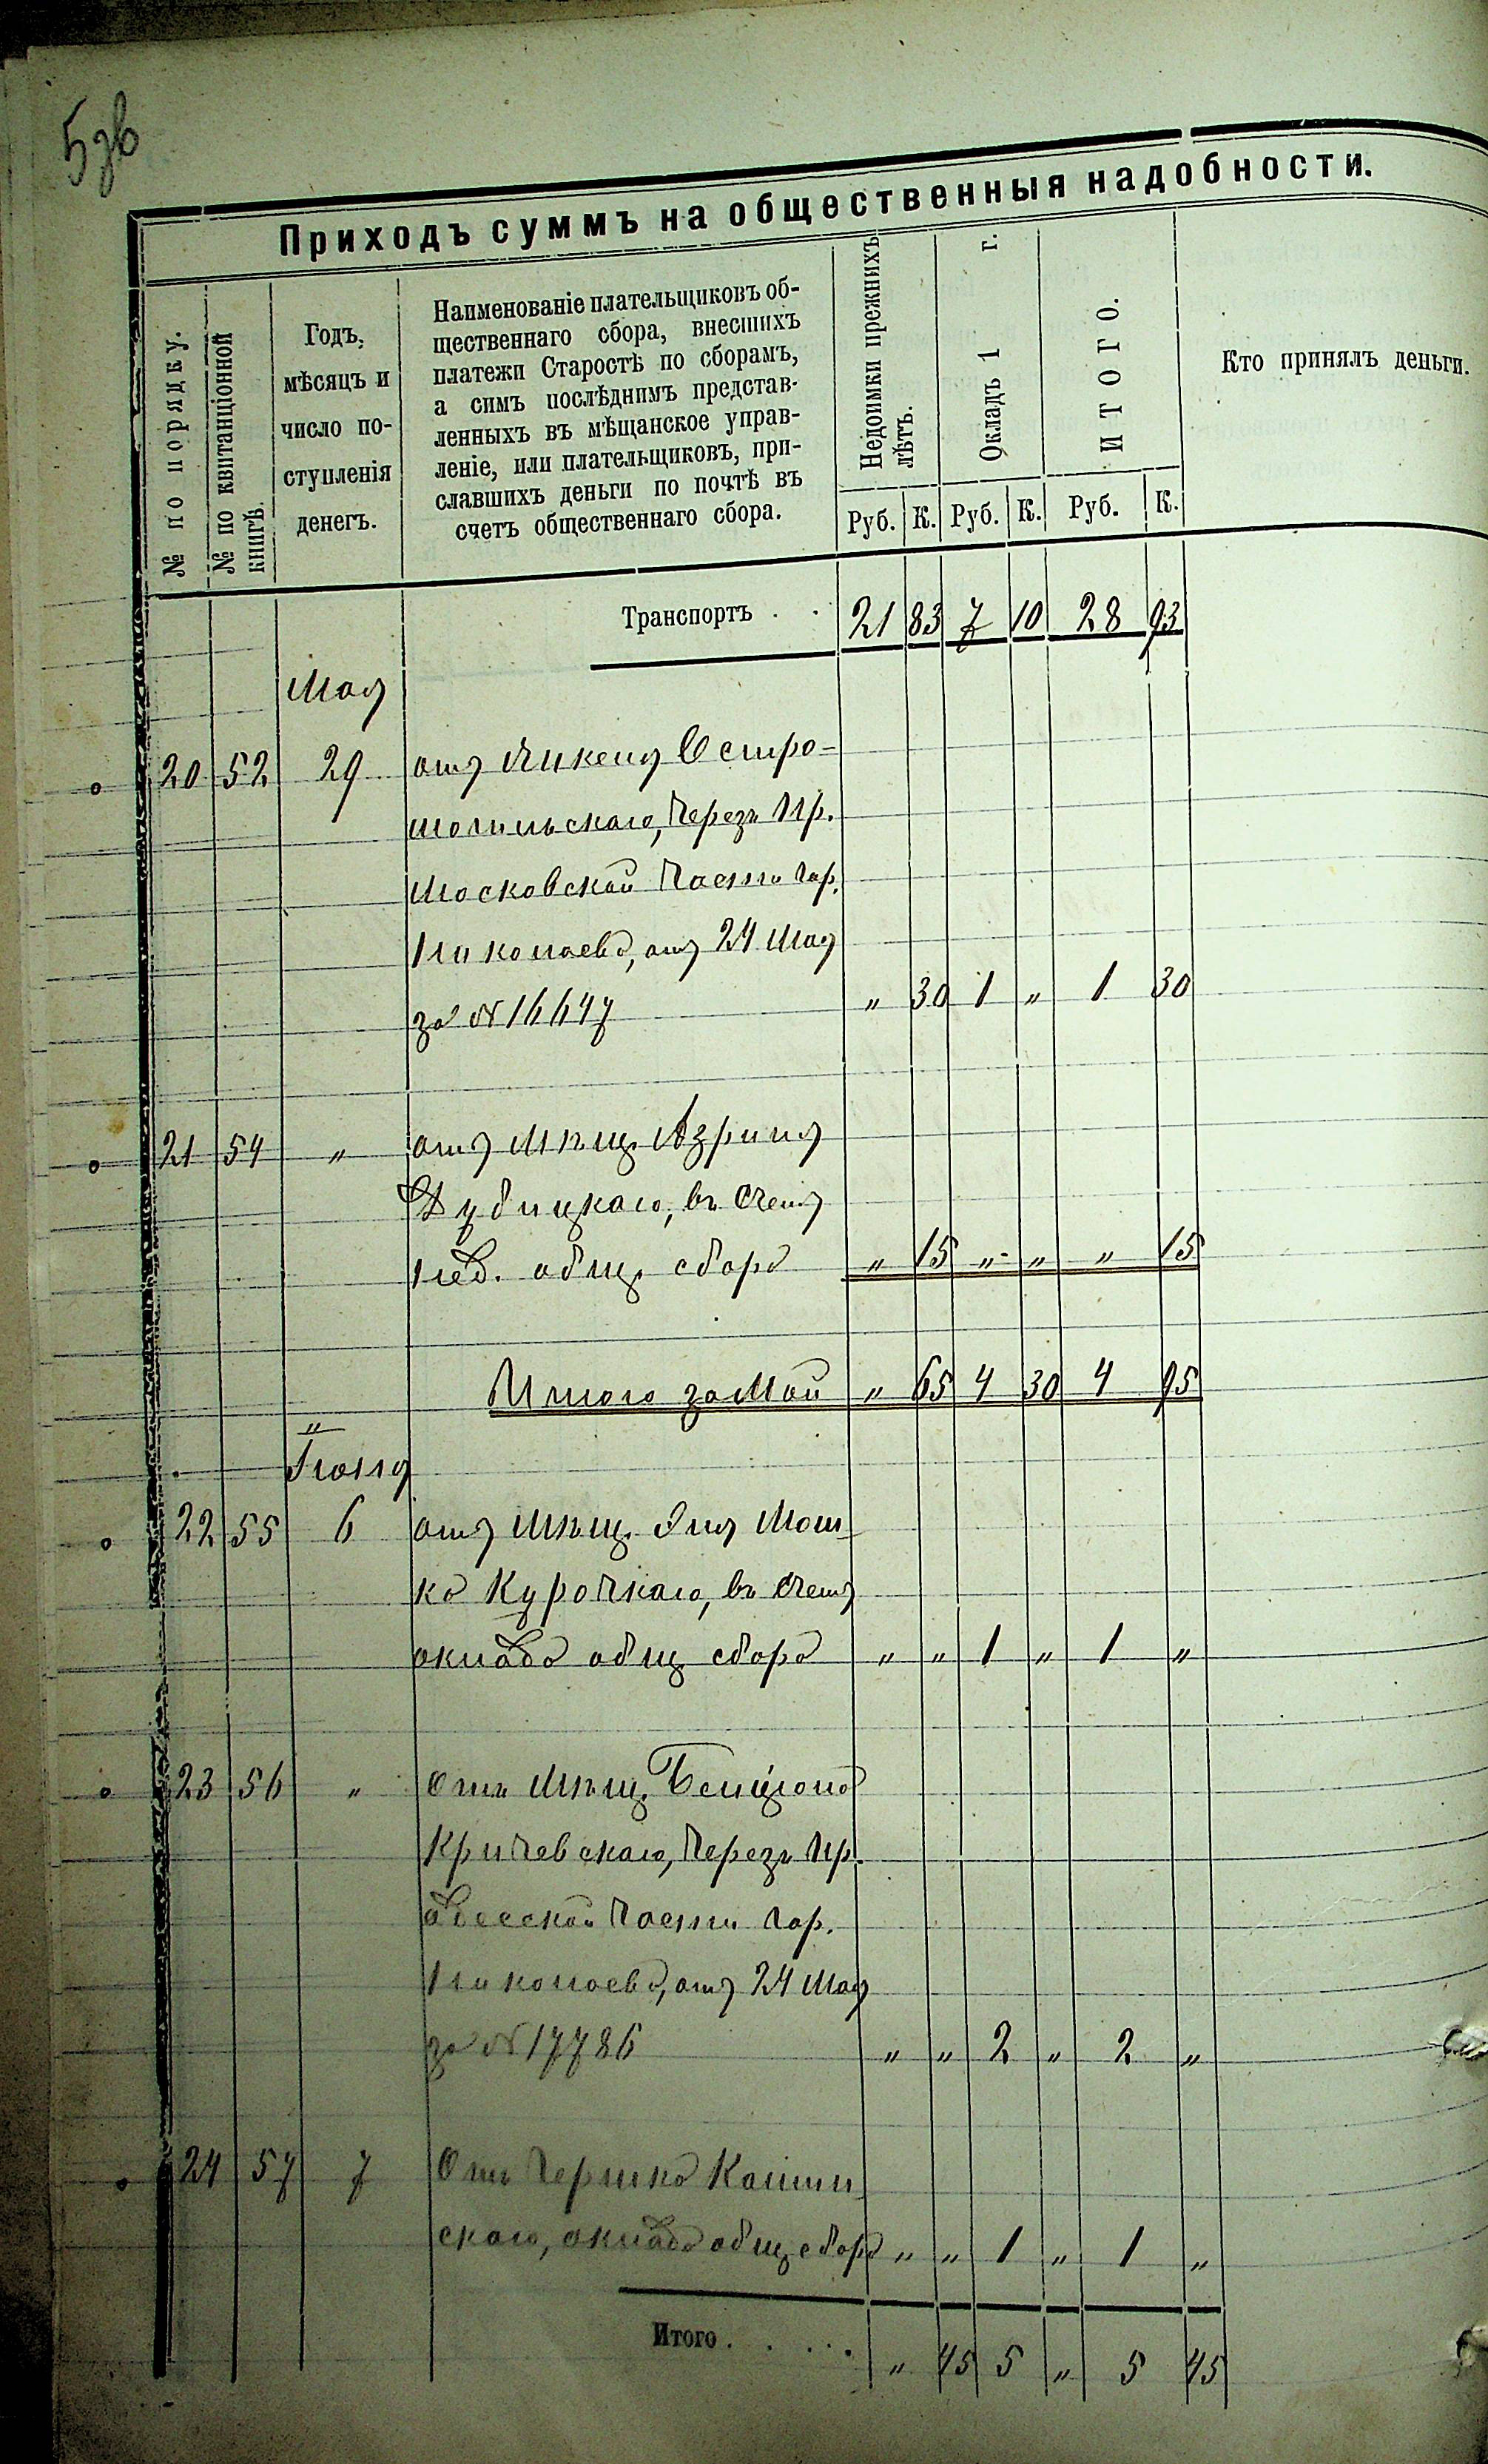 5зв
Приходъ суммъ на общественныя надобности.
№ по порядку.
№ по квитанціонной книгѣ.
Годъ, мѣсяцъ и число поступленія денегъ.
Наименованіе плательщиковъ об-
щественнаго сбора, внесшихъ
платежи Старостѣ по сборамъ,
а симъ послѣднимъ представ-
ленныхъ въ мѣщанское управ-
леніе, или плательщиковъ, при-
славшихъ деньги по почтѣ въ
счетъ общественнаго сбора.
Недоимки прежнихъ лѣтъ.
Окладъ 1 г.
ИТОГО.
Кто принялъ деньги.
Руб. К. Руб. К. Руб. К.
Транспортъ . . 21 83 7 10 28 93
Мая
20 52 29 отъ Янкеля Остро-
могильскаго, Черезъ Пр.
Московской Части гор.
Николаева, отъ 24 Мая
за № 16647 " 30 1 " 1 30
21 54 " отъ Мѣщ. Азріил
Дубицкаго, въ Счетъ
нед. общ. сбора " 15 " " " 15
Итого за Май " 65 4 30 4 95
Іюня
22 55 6 отъ Мѣщ. Мош
ка Курочкаго, въ Счетъ
оклада общ сбора " " 1 " 1 "
23 56 " Отъ Мѣщ. Бенціона
Кричевскаго, Черезъ Пр.
Одесской Части гор.
Николаева, отъ 24 Мая
за № 17786 " " 2 " 2 "
24 57 7 Отъ Гершка Камин
скаго, оклада общ сбора " " 1 " 1 "
Итого . . . . . " 45 5 " 5 45